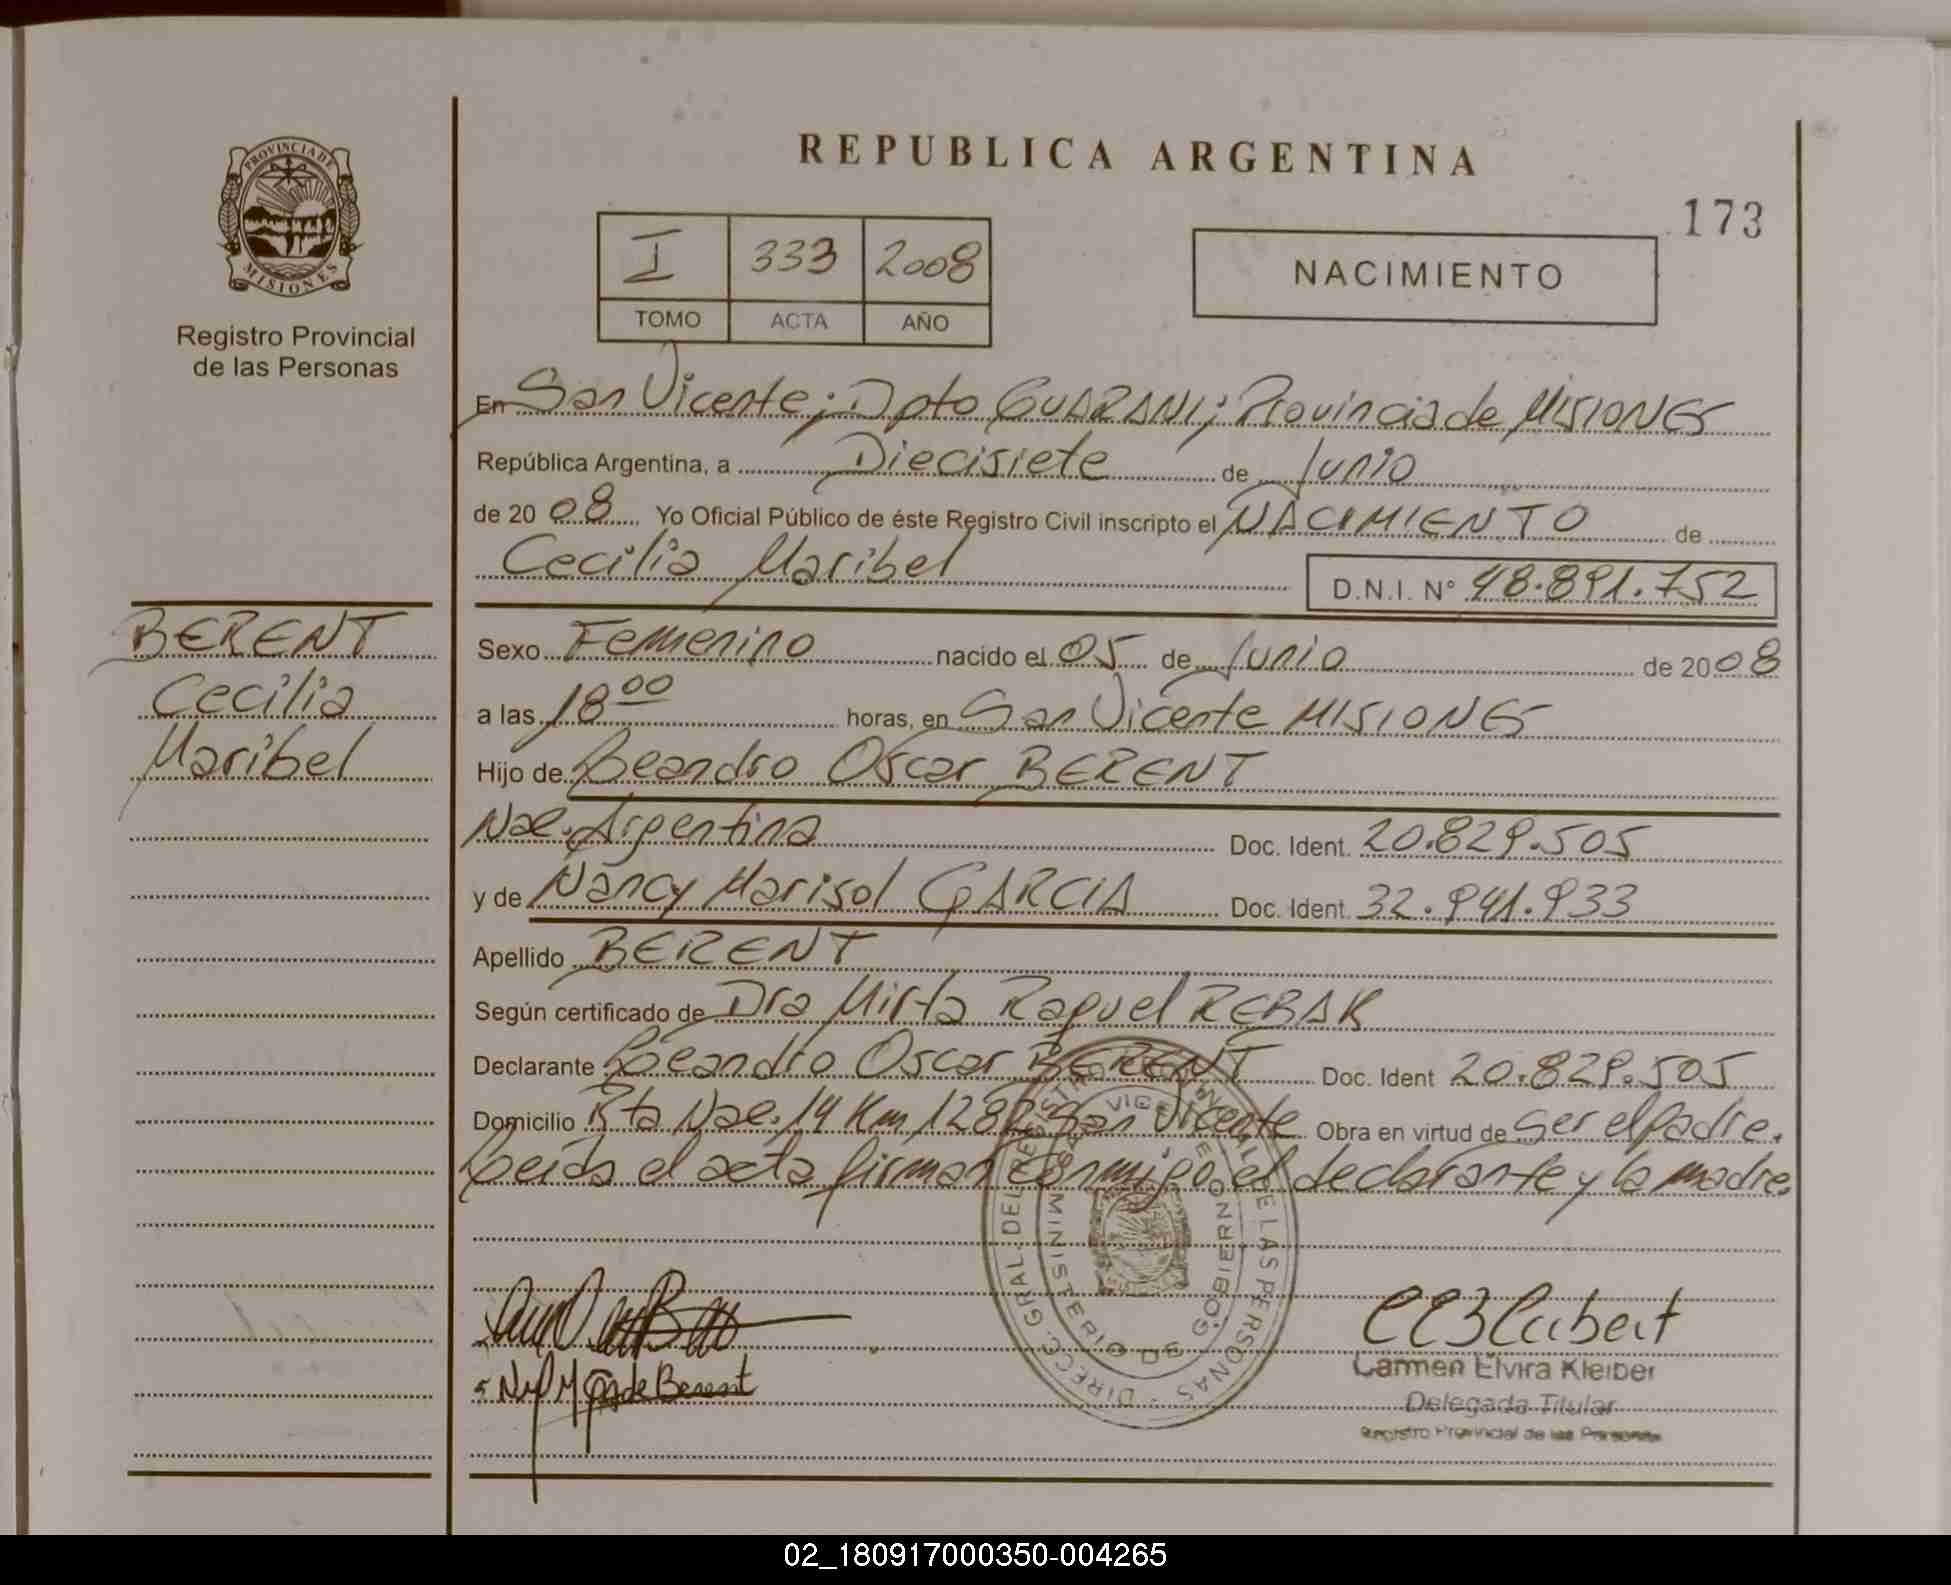 REPUBLICA ARGENTINA
173
PROVINCIA DE MISIONES
Registro Provincial
de las Personas
I 333 2008
TOMO ACTA AÑO
NACIMIENTO
En San Vicente; Dpto GUARANI; Provincia de MISIONES
República Argentina, a Diecisiete de Junio
de 2008 Yo Oficial Público de éste Registro Civil inscripto el NACIMIENTO de
Cecilia Maribel D.N.I. N° 48.891.752
BERENT
Cecilia
Maribel
Sexo Femenino nacido el 05 de Junio de 2008
a las 18 00 horas, en San Vicente MISIONES
Hijo de Leandro Oscar BERENT
Nac. Argentina Doc. Ident. 20.829.505
y de Nancy Marisol GARCIA Doc. Ident. 32.941.933
Apellido BERENT
Según certificado de Dra Mirta Raquel REBAK
Declarante Leandro Oscar BERENT Doc. Ident 20.829.505
Domicilio Rta Nac. 14 Km 1282 San Vicente Obra en virtud de ser el padre.
Leida el acta firman conmigo el declarante y la madre.
DIRECC. GRAL. DEL REGISTRO PROVINCIAL DE LAS PERSONAS
MINISTERIO DE GOBIERNO
de Berent
Carmen Elvira Kleiber
Delegada Titular
Registro Provincial de las Personas
02_180917000350-004265